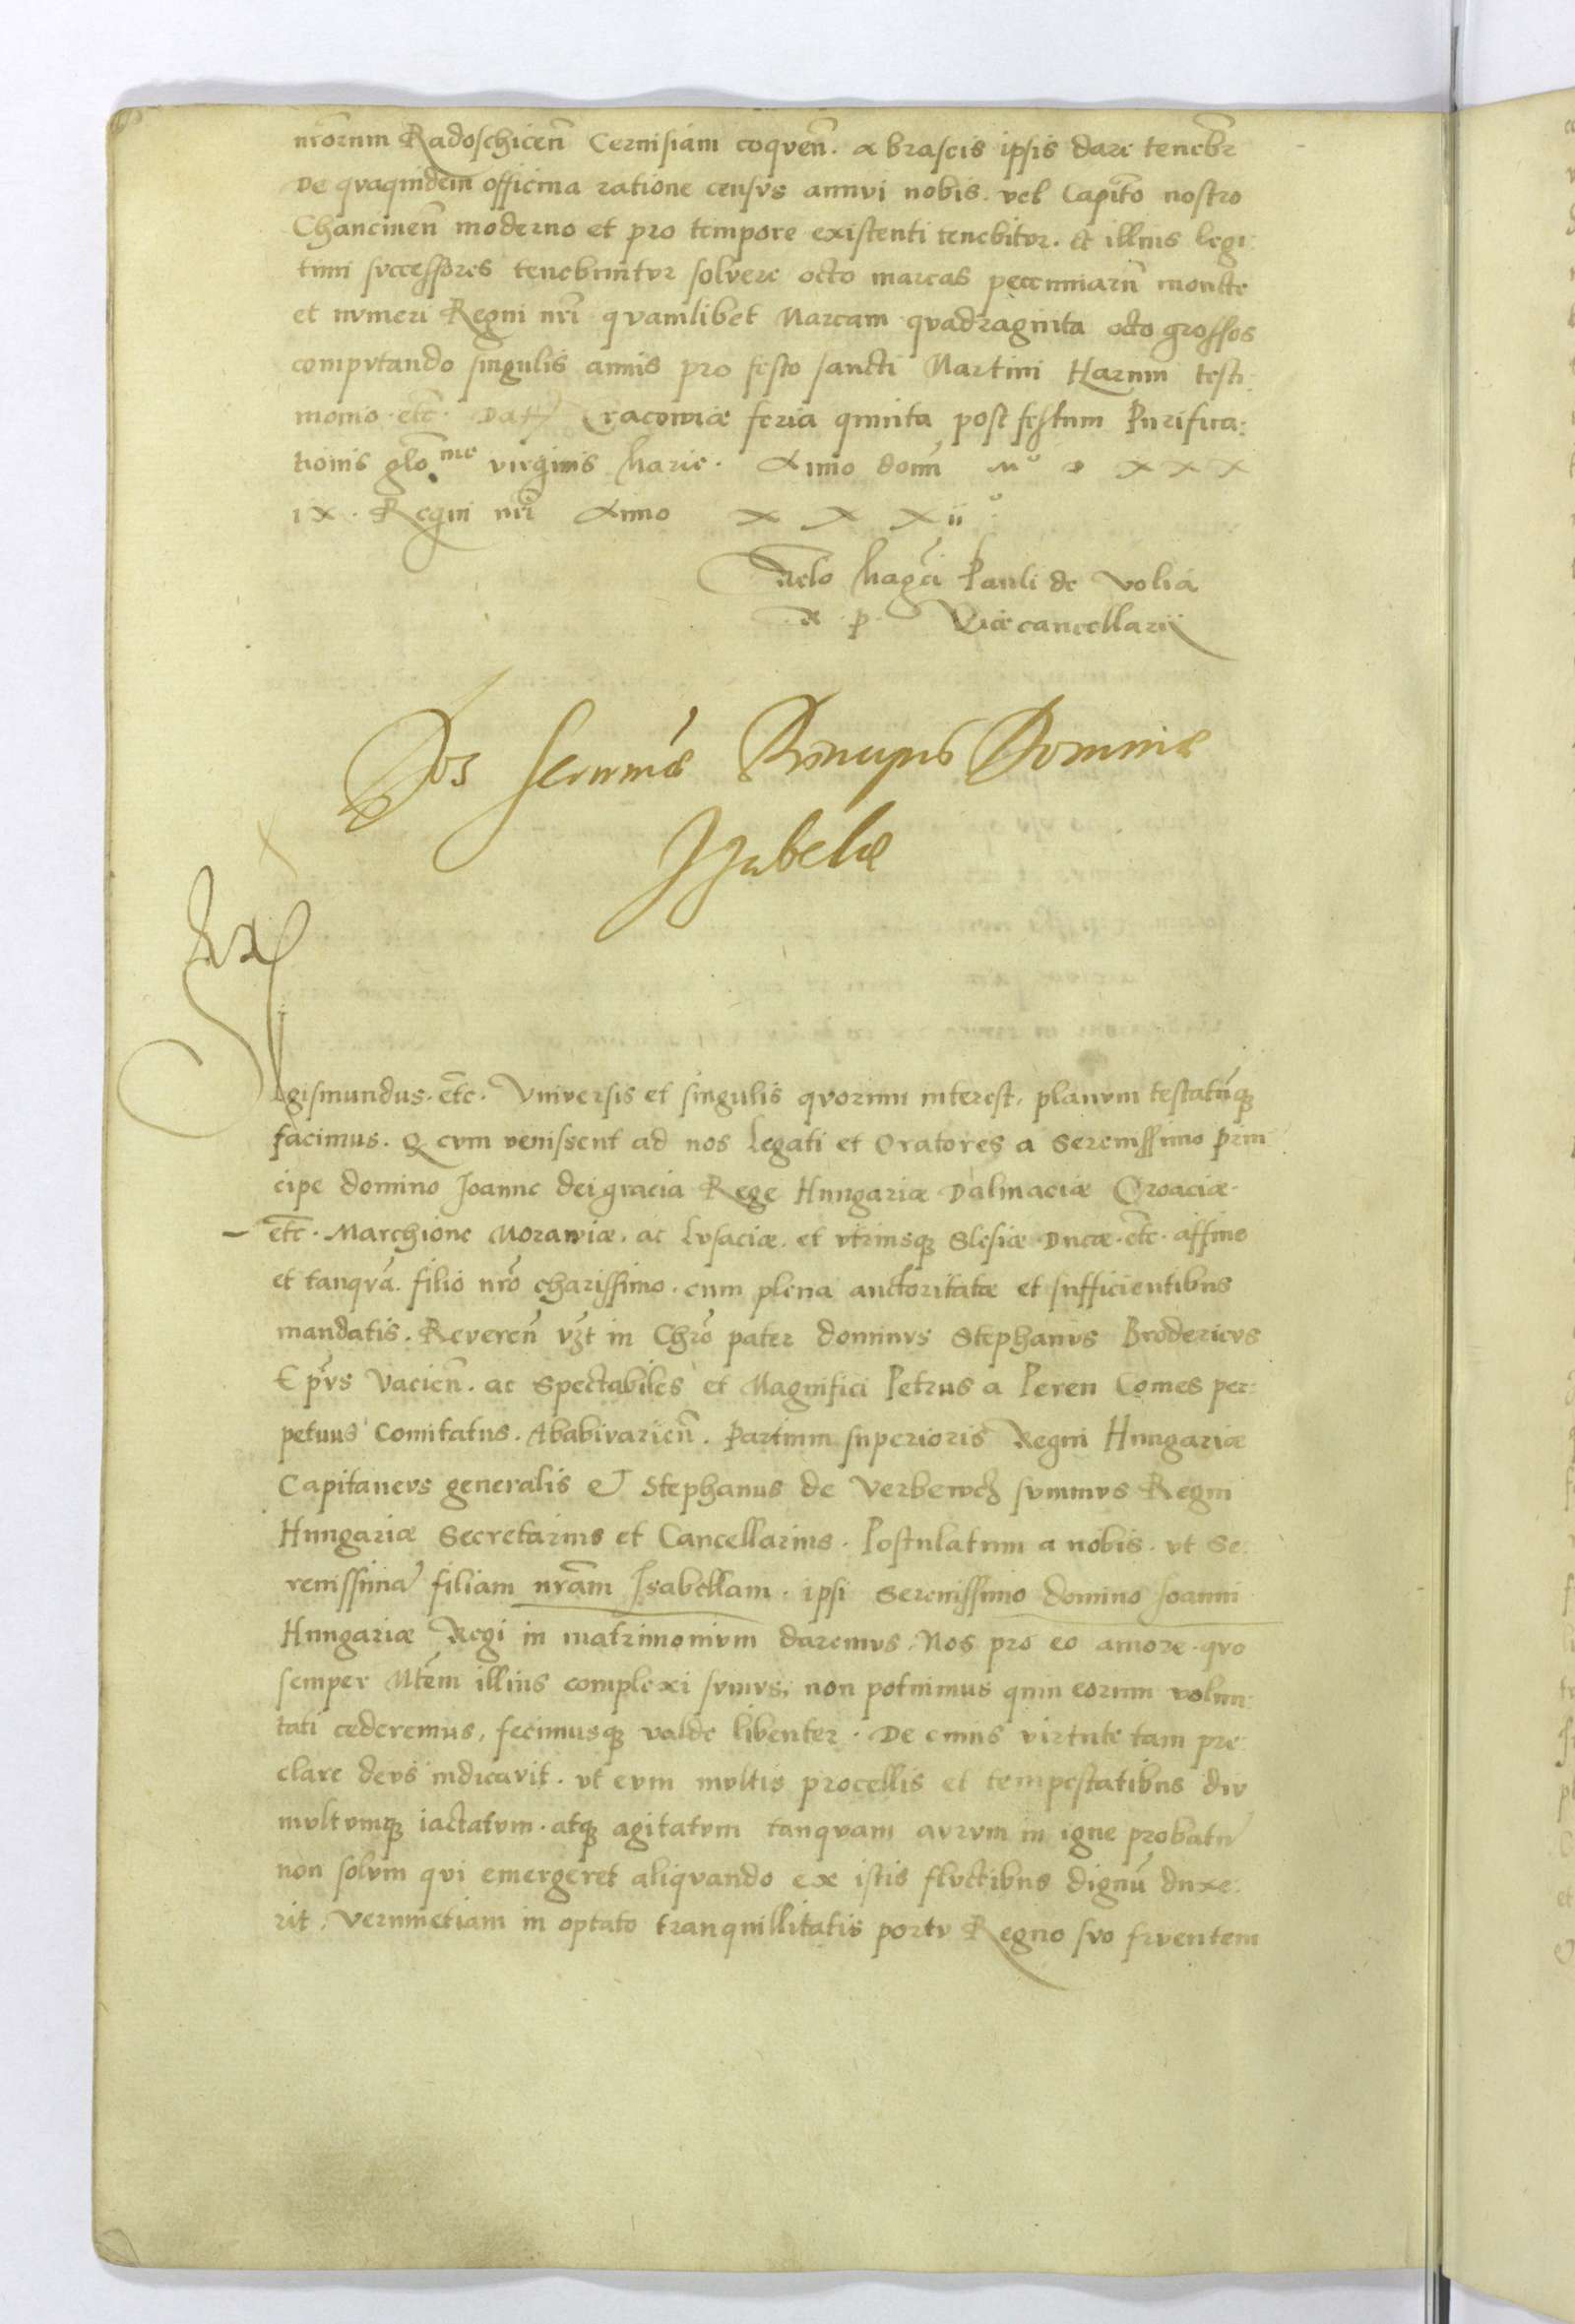 nrõrum Radoschiceñ Cernisiam coqueñ. a brascis ipsis dare tenebr̃
De qvaquidem officina ratione censvs annvi nobis. vel Capitõ nostro
Chancineñ moderno et pro tempore existenti tenebitvr. et illius legi:
timi svccessores tenebuntvr solvere octo marcas peccuniarũ monete
et nvmeri Regni nr̃i qvamlibet Marcam qvadraginta octo grossos
compvtando singulis annis pro festo sancti Martini Harum testi:
monio. etc̃. Dat Cracoviæ feria quinta post festum Purifica:
tionis glõ virginis Marie. Anno domĩ Mº D XXX
IX. Regni nr̃i Anno XXXiiº
Relo Magci Pauli de Volia
R. P. Vicecancellarij
Dos Serenme Principis Domine
Izabelæ
gismundus. etc̃. Vniversis et singulis qvorum interest, planvm testatũqȝ
facimus. Q cvm venissent ad nos Legati et Oratores a Serenissimo prin
cipe domino Joanne dei gracia Rege Hungariæ Dalmaciæ Croaciæ.
etc̃. Marchione Moraviæ. ac Lvsaciæ. et vtriusqȝ Slesiæ Ducæ. etc̃. affine
et tanqvã. filio nrõ charissimo. cum plena auctoritatæ et sufficientibus
mandatis. Revereñ vȝt in Chrõ pater dominvs Stephanvs Brodericvs
Ep̃vs Vacieñ. ac Spectabiles et Magnifici Petrus a Peren Comes per:
petuus Comitatus. Ababivarieñ. Partium superioris Regni Hungariæ
Capitanevs generalis et Stephanus de Verbewcȝ svmmvs Regni
Hungariæ Secretarius et Cancellarius. Postulatum a nobis. vt Se:
renissimã filiam nrãm Isabellam. ipsi Serenissimo domino Joanni
Hungariæ Regi in matrimonivm daremvs. Nos pro eo amore. qvo
semper Mtẽm illius complexi svmvs, non potuimus quin eorum volun:
tati cederemus, fecimusqȝ valde libenter. De cuius virtute tam pre:
clare devs indicavit. vt evm mvltis procellis et tempestatibus div
mvltvmqȝ iactatvm. atqȝ agitatvm tanqvam avrvm in igne probatũ
non solvm qvi emergeret aliqvando ex istis flvctibus dignũ duxe:
rit. Verumetiam in optato tranquillitatis portv Regno svo frventem